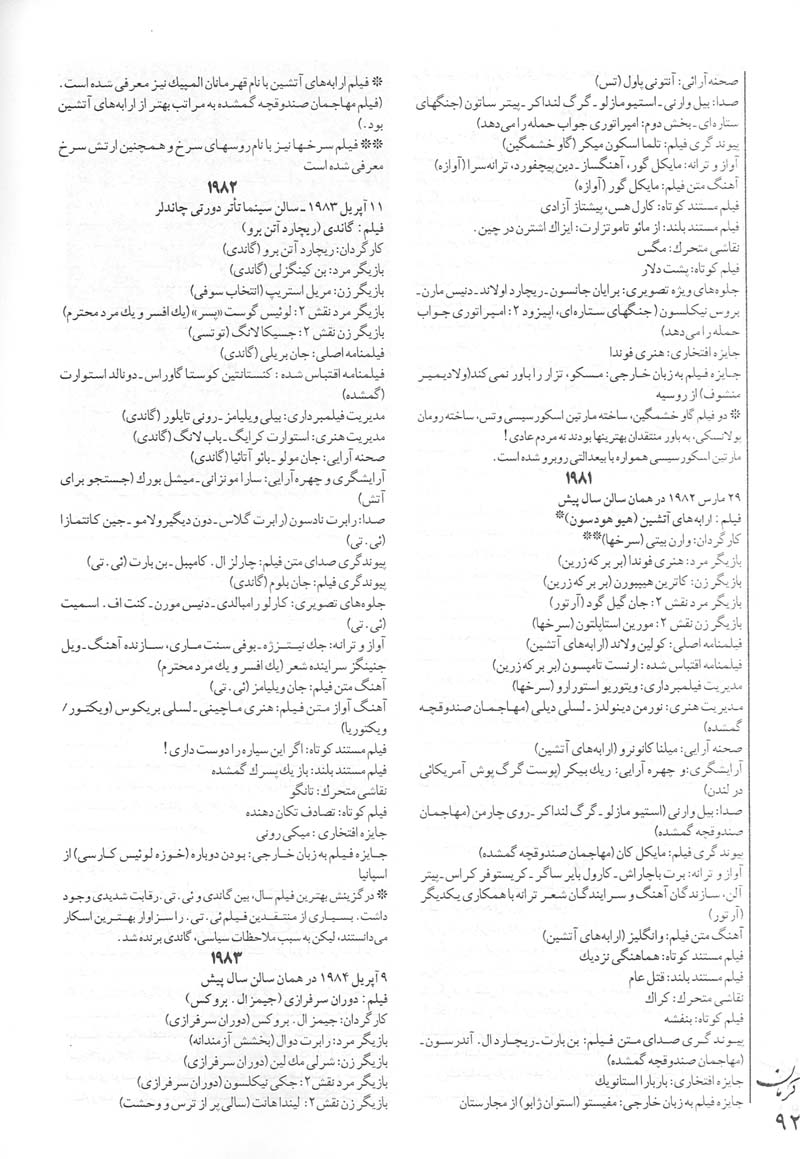 صحنه آرائی: آنتونی پاول (تس)
صدا: بیل وارنی ـ استیو مازلو ـ گرگ لنداکر ـ پیتر ساتون (جنگهای
ستاره‌ای ـ بخش دوم: امپراتوری جواب حمله را می‌دهد)
پیوند گری فیلم: تلما اسکون میکر (گاو خشمگین)
آواز و ترانه: مایکل گور، آهنگساز ـ دین پیچفورد، ترانه سرا (آوازه)
آهنگ متن فیلم: مایکل گور (آوازه)
فیلم مستند کوتاه: کارل هس، پیشتاز آزادی
فیلم مستند بلند: از مائو تا موتزارت: ایزاک اشترن در چین.
نقاشی متحرک: مگس
فیلم کوتاه: پشت دلار
جلوه‌های ویژه تصویری: برایان جانسون ـ ریچارد اولاند ـ دنیس مارن ـ
بروس نیکلسون (جنگهای ستاره‌ای، اپیزود ۲: امپراتوری جواب
حمله را می‌دهد)
جایزه افتخاری: هنری فوندا
جایزه فیلم به زبان خارجی: مسکو، تزار را باور نمی کند (ولادیمیر
منشوف) از روسیه
※ دو فیلم گاو خشمگین، ساخته مارتین اسکورسیسی و تس، ساخته رومان
پولانسکی، به باور منتقدان بهترینها بودند نه مردم عادی!
مارتین اسکورسیسی همواره با بیعدالتی روبرو شده است.
۱۹۸۱
۲۹ مارس ۱۹۸۲ در همان سالن سال پیش
فیلم: ارابه‌های آتشین (هیو هودسون)※
کارگردان: وارن بیتی (سرخها)※※
بازیگر مرد: هنری فوندا (بر برکه زرین)
بازیگر زن: کاترین هیپبورن (بر برکه زرین)
بازیگر مرد نقش ۲: جان گیل گود (آرتور)
بازیگر زن نقش ۲: مورین استاپلتون (سرخها)
فیلمنامه اصلی: کولین ولاند (ارابه‌های آتشین)
فیلمنامه اقتباس شده: ارنست تامپسون (بر برکه زرین)
مدیریت فیلمبرداری: ویتوریو استورارو (سرخها)
مدیریت هنری: نورمن دینولدز ـ لسلی دیلی (مهاجمان صندوقچه
گمشده)
صحنه آرایی: میلنا کانونرو (ارابه‌های آتشین)
آرایشگری: و چهره آرایی: ریك بیکر (پوست گرگ پوش آمریکائی
در لندن)
صدا: بیل وارنی (استیو مازلو ـ گرگ لنداکر ـ روی چارمن (مهاجمان
صندوقچه گمشده)
پیوند گری فیلم: مایکل کان (مهاجمان صندوقچه گمشده)
آواز و ترانه: برت باچاراش ـ کارول بایر ساگر ـ کریستوفر کراس ـ پیتر
آلن، سازندگان آهنگ و سرایندگان شعر ترانه با همکاری یکدیگر
(آرتور)
آهنگ متن فیلم: وانگلیز (ارابه‌های آتشین)
فیلم مستند کوتاه: هماهنگی نزدیك
فیلم مستند بلند: قتل عام
نقاشی متحرک: کراك
فیلم کوتاه: بنفشه
پیوند گری صدای متن فیلم: بن بارت ـ ریچارد ال. آندرسون ـ
(مهاجمان صندوقچه گمشده)
جایزه افتخاری: باربارا استانویك
جایزه فیلم به زبان خارجی: مفیستو (استوان ژابو) از مجارستان
※ فیلم ارابه‌های آتشین با نام قهرمانان المپیك نیز معرفی شده است.
(فیلم مهاجمان صندوقچه گمشده به مراتب بهتر از ارابه‌های آتشین
بود.)
※※ فیلم سرخها نیز با نام روسهای سرخ و همچنین ارتش سرخ
معرفی شده است
۱۹۸۲
۱۱ آپریل ۱۹۸۳ ـ سالن سینما تأتر دورتی چاندلر
فیلم: گاندی (ریچارد آتن برو)
کارگردان: ریچارد آتن برو (گاندی)
بازیگر مرد: بن کینگزلی (گاندی)
بازیگر زن: مریل استریپ (انتخاب سوفی)
بازیگر مرد نقش ۲: لوئیس گوست «پسر» (یك افسر و یك مرد محترم)
بازیگر زن نقش ۲: جسیکا لانگ (توتسی)
فیلمنامه اصلی: جان بریلی (گاندی)
فیلمنامه اقتباس شده: کنستانتین کوستا گاوراس ـ دونالد استوارت
(گمشده)
مدیریت فیلمبرداری: بیلی ویلیامز ـ رونی تایلور (گاندی)
مدیریت هنری: استوارت کرایگ ـ باب لانگ (گاندی)
صحنه آرایی: جان مولو ـ بائو آتائیا (گاندی)
آرایشگری و چهره آرایی: سارا مونزانی ـ میشل بورك (جستجو برای
آتش)
صدا: رابرت نادسون (رابرت گلاس ـ دون دیگیرولامو ـ جین کانتمازا
(ئی. تی)
پیوندگری صدای متن فیلم: چارلز ال. کامپبل ـ بن بارت (ئی. تی)
پیوندگری فیلم: جان بلوم (گاندی)
جلوه‌های تصویری: کارلو رامبالدی ـ دنیس مورن ـ کنت اف. اسمیت
(ئی. تی)
آواز و ترانه: جك نیتزژه ـ بوفی سنت ماری، سازنده آهنگ ـ ویل
جنینگز سراینده شعر (یك افسر و یك مرد محترم)
آهنگ متن فیلم: جان ویلیامز (ئی. تی)
آهنگ آواز متن فیلم: هنری ماچینی ـ لسلی بریکوس (ویکتور/
ویکتوریا)
فیلم مستند کوتاه: اگر این سیاره را دوست داری!
فیلم مستند بلند: باز یك پسرك گمشده
نقاشی متحرك: تانگو
فیلم کوتاه: تصادف تکان دهنده
جایزه افتخاری: میکی رونی
جایزه فیلم به زبان خارجی: بودن دوباره (خوزه لوئیس کارسی) از
اسپانیا
※ در گزینش بهترین فیلم سال، بین گاندی و ئی. تی. رقابت شدیدی وجود
داشت. بسیاری از منتقدین فیلم ئی. تی. را سزاوار بهترین اسکار
می‌دانستند، لیکن به سبب ملاحظات سیاسی، گاندی برنده شد.
۱۹۸۳
۹ آپریل ۱۹۸۴ در همان سالن سال پیش
فیلم: دوران سرفرازی (جیمز ال. بروکس)
کارگردان: جیمز ال. بروکس (دوران سرفرازی)
بازیگر مرد: رابرت دوال (بخشش آزمندانه)
بازیگر زن: شرلی مك لین (دوران سرفرازی)
بازیگر مرد نقش ۲: جکی نیکلسون (دوران سرفرازی)
بازیگر زن نقش ۲: لیندا هانت (سالی پر از ترس و وحشت)
کرمان
۹۲